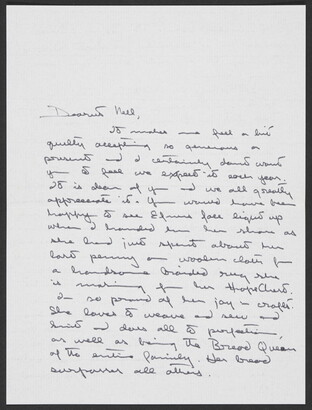 Dearest Nell,
It makes me feel a bit
guilty accepting so generous a
present and I certainly don't want
you to feel we expect it each year.
It is dear of you and we all greatly
appreciate it. You would have been
happy to see face light up
when I handed her her share as
she had just spent about her
last penny on woolen cloth for
a handsome braided rug she
is making for her Hope Chest.
I'm so proud of her joy in crafts.
She loves to weave and sew and
knit and does all to perfection,
as well as being the Bread Queen
of the entire family. Her bread
surpasses all others.